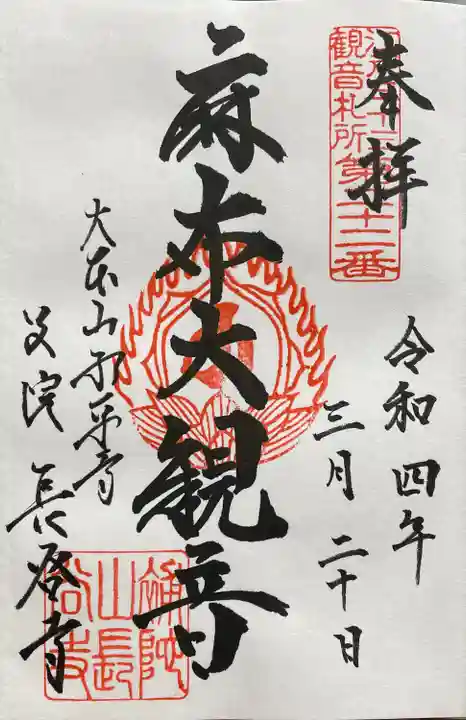 奉拝
江戸三十三
観音札所第二十二番
令和四年
三月二十日
麻布大観音
大本山永平寺
別院長谷寺
補陀
山長
谷寺